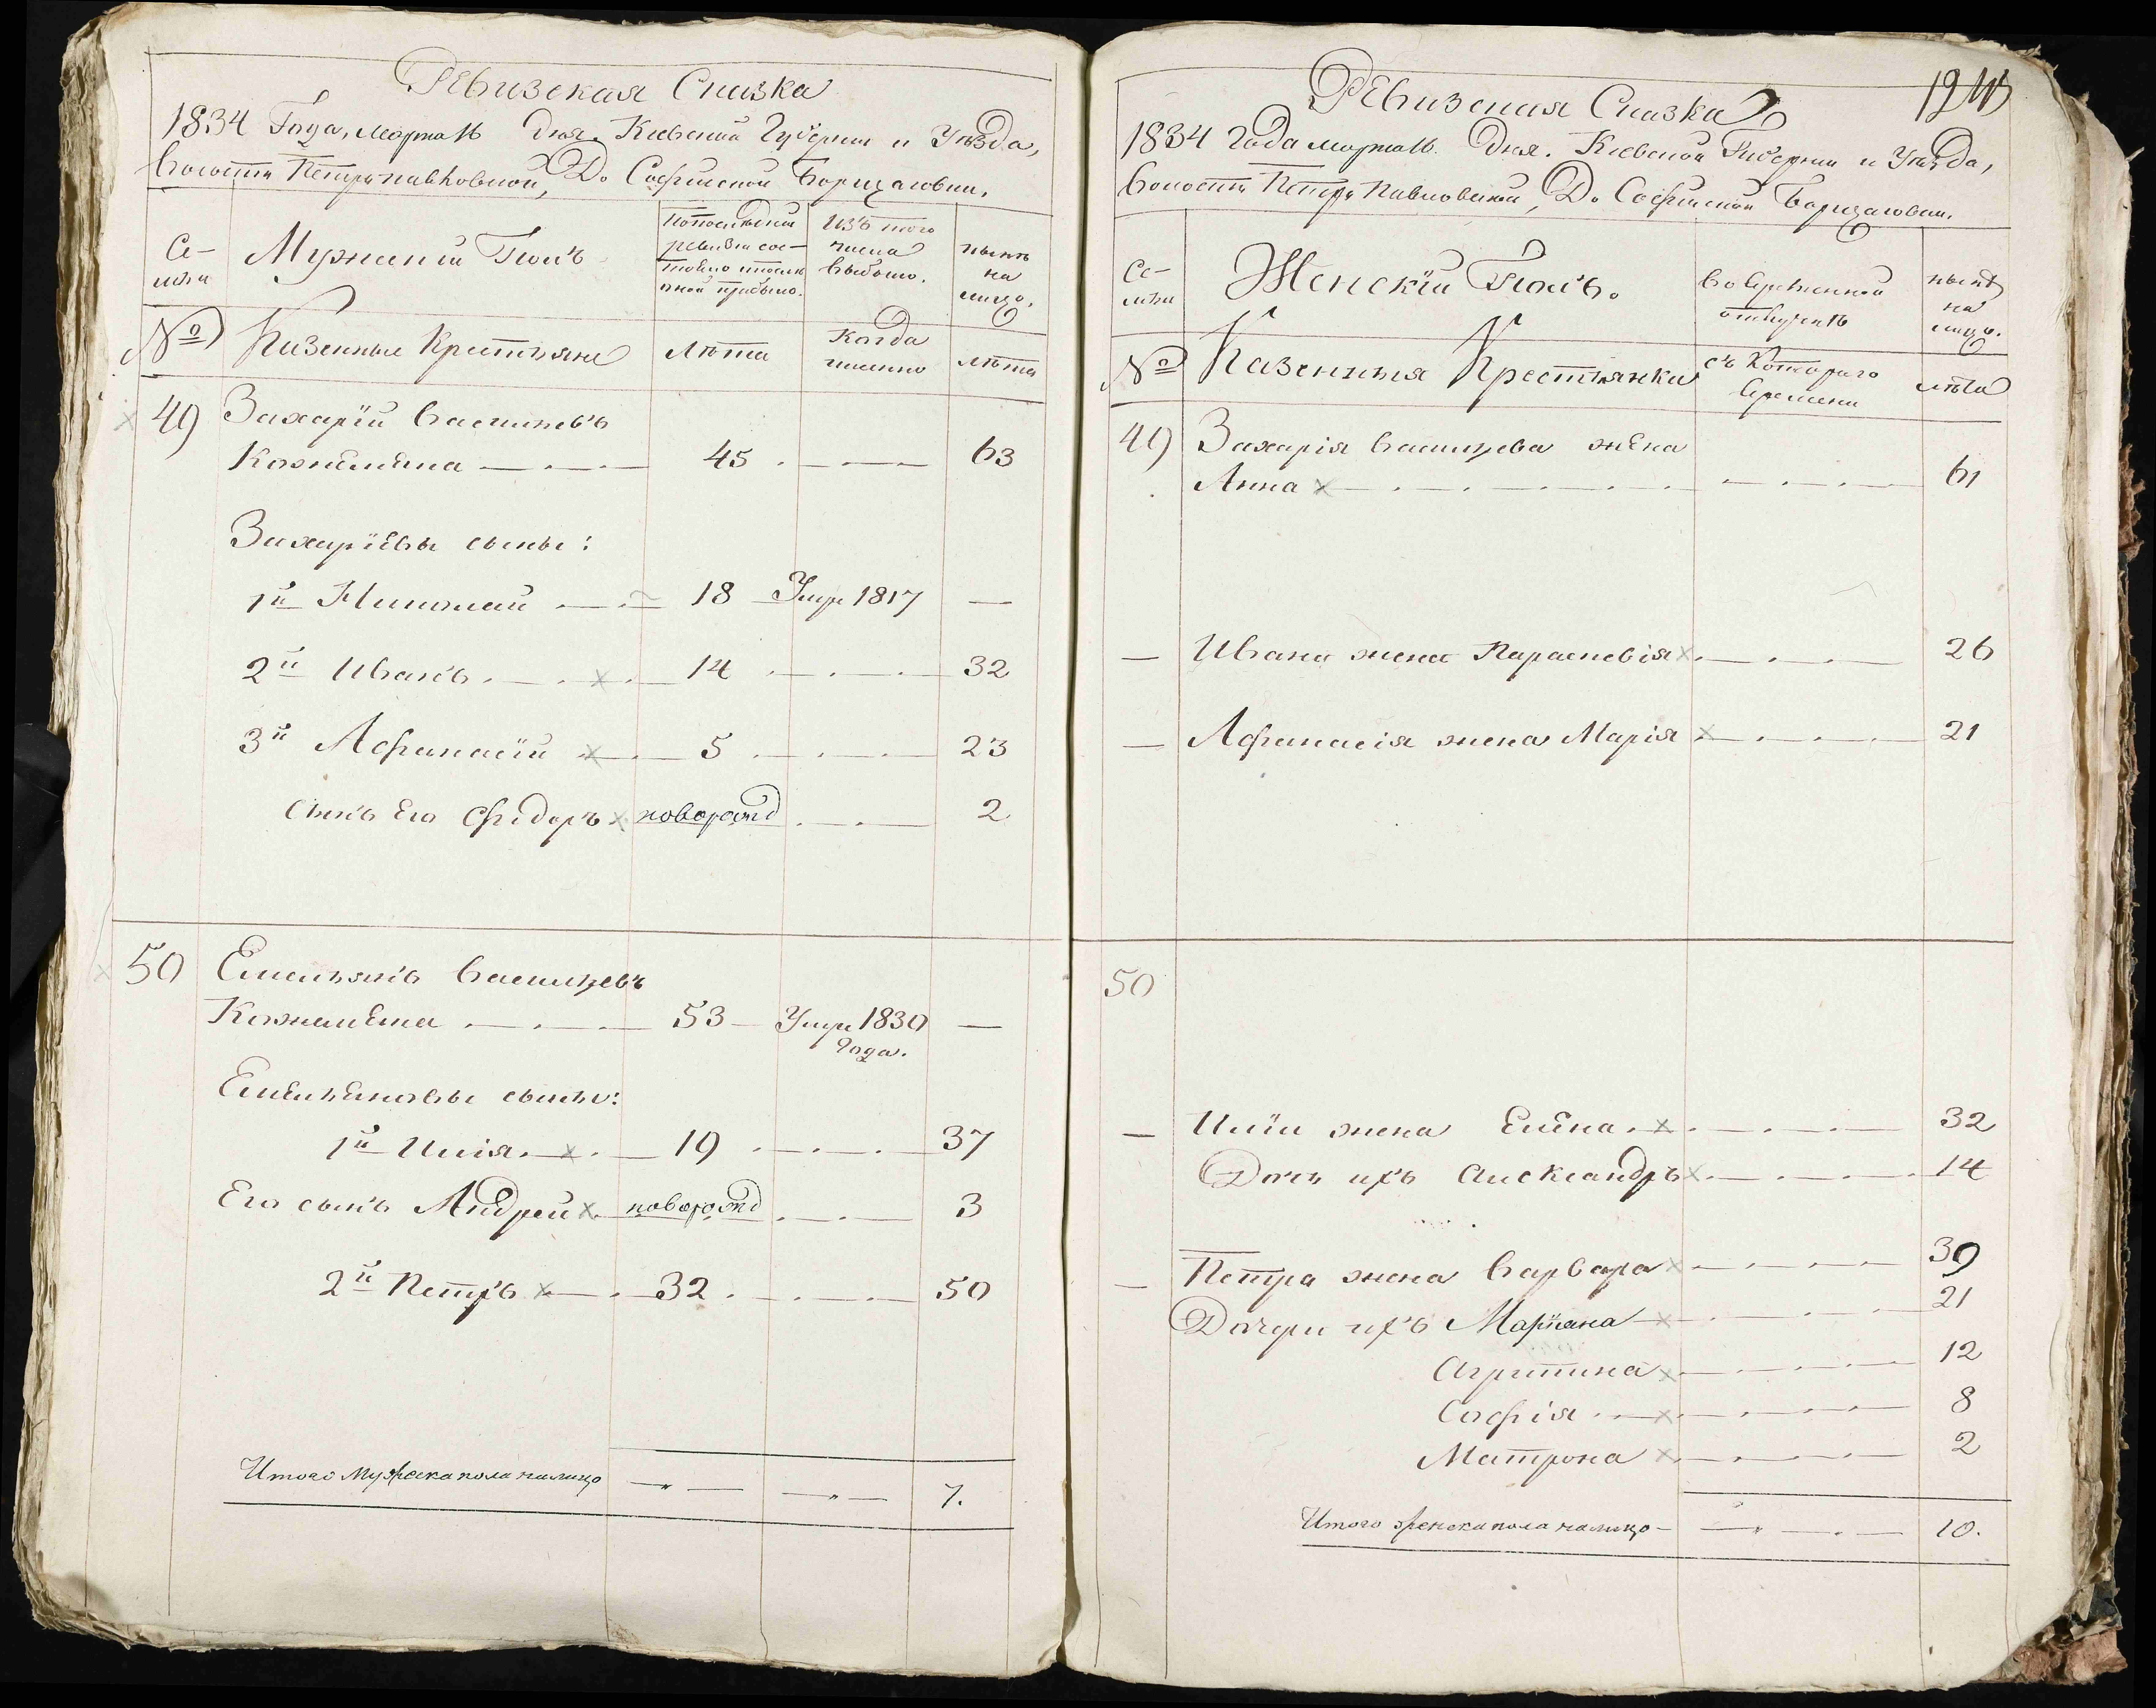 Ревизская Сказка
1834 Года, марта 16 дня. Киевской Губернии и Уѣзда,
Волости Петропавловской, Д. Софийской Борщаговки.
Се-
мьи
Мужеский Полъ
Попоследней
ревизии сос-
тояло и после
оной прибыло.
Изъ того
числа
выбыло.
нынѣ
на
лицо.
№
Казенные Крестьяне
Лѣта
Когда
именно
лѣта
49 Захарий Васильевъ
Кожемяка 45 63
Захариевы сыны:
1й Николай 18 Умре 1817 —
2й Иванъ 14 32
3й Афанасий 5 23
Сынъ Его Фѣдоръ новорожд 2
50 Емельянъ Васильевъ
Кожемяка 53 Умре 1830 —
Года.
Емельяновы сыны:
1й Илия 19 37
Его сынъ Андрей новорожд 3
2й Петръ 32 50
Итого мужеска пола налицо 7.
Ревизская Сказка
1834 Года марта 16. Дня. Киевской Губернии и Уѣзда,
Волости Петропавловской, Д. Софийской Борщаговки.
Се-
мьи
Женскій Полъ.
Во временной
отлучкѣ
нынѣ
на
лицо.
№
Казенныя Крестьянки
съ Котораго
Времени
лѣта
49 Захарія Васильева жена
Анна 61
— Ивана жена Параскевія 26
— Афанасія жена Марія 21
50
— Илии жена Елена 32
Дочь ихъ Александръ 14
— Петра жена Варвара 39
Дочери ихъ Марианa 21
Агрипина 12
Софія 8
Матрона 2
Итого женска пола налицо 10.